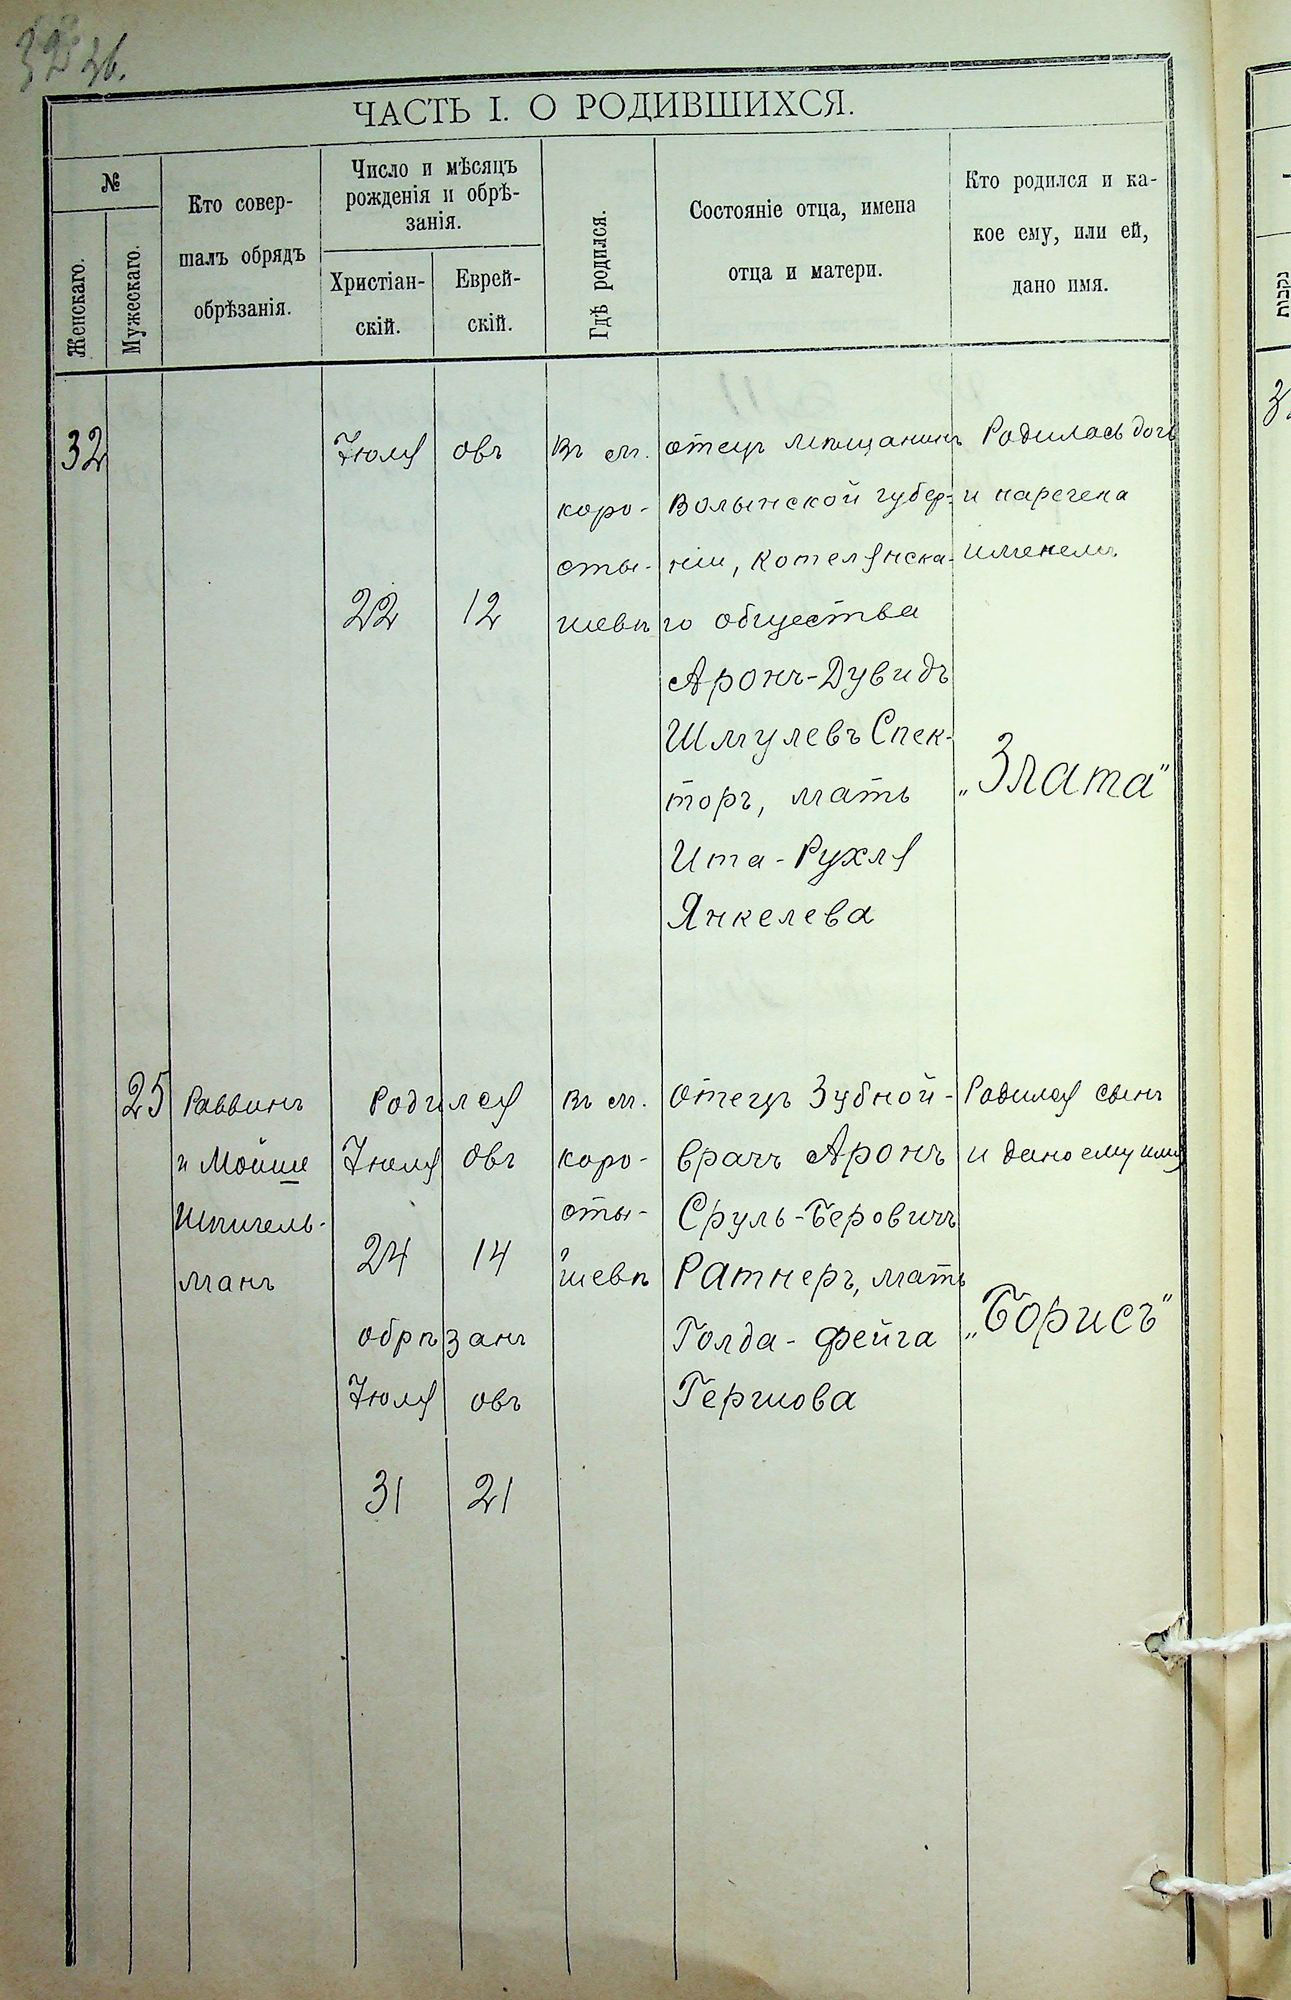 ЧАСТЬ I. О РОДИВШИХСЯ.
№
Женскаго.
Мужескаго.
Кто совер-
шалъ обрядъ
обрѣзанія.
Число и мѣсяцъ
рожденія и обрѣ-
занія.
Христіан-
скій.
Еврей-
скій.
Гдѣ родился.
Состояніе отца, имена
отца и матери.
Кто родился и ка-
кое ему, или ей,
дано имя.
32
Іюля
22
овъ
12
Въ м.
коро-
сты-
шевѣ
отецъ мѣщанинъ
Волынской губер-
ніи, Котелянска-
го общества
Аронъ-Дувидъ
Шмулевъ Спек-
торъ, мать
Ита-Рухля
Янкелева
Родилась дочь
и наречена
именемъ
„Злата"
25
Раввинъ
и Мойше
Шпигель-
манъ
Родился
Іюля овъ
24 14
обрѣзанъ
Іюля овъ
31 21
Въ м.
коро-
сты-
шевѣ
Отецъ Зубной-
врачъ Аронъ
Сруль-Беровичъ
Ратнеръ, мать
Голда-Фейга
Гершова
Родился сынъ
и дано ему имя
„Борисъ"
נקבות